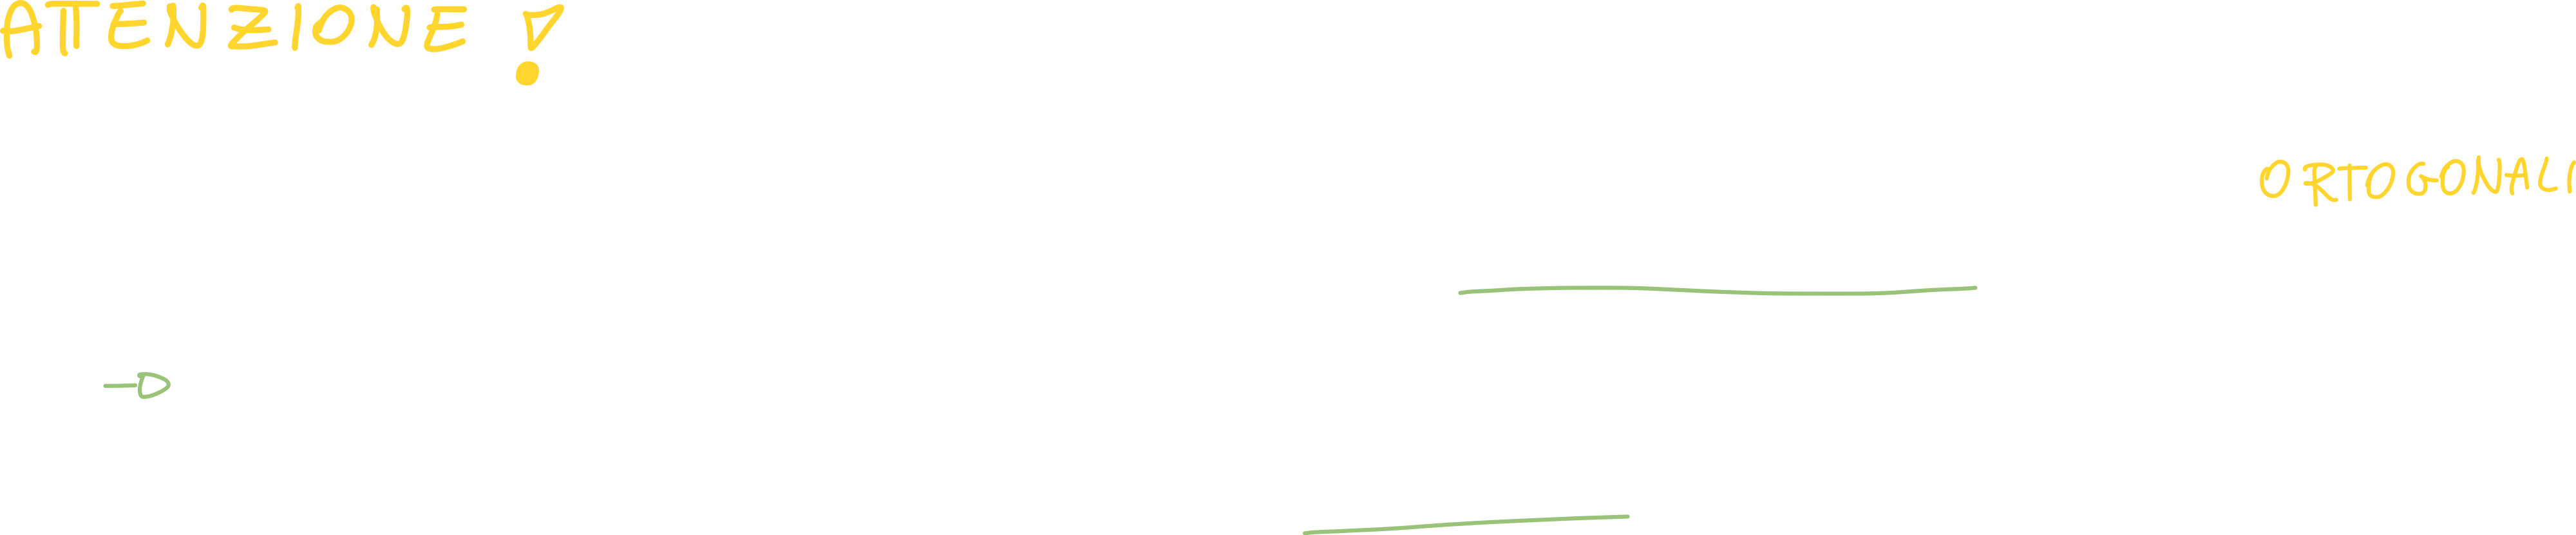 ATTENZIONE!
ORTOGONALI